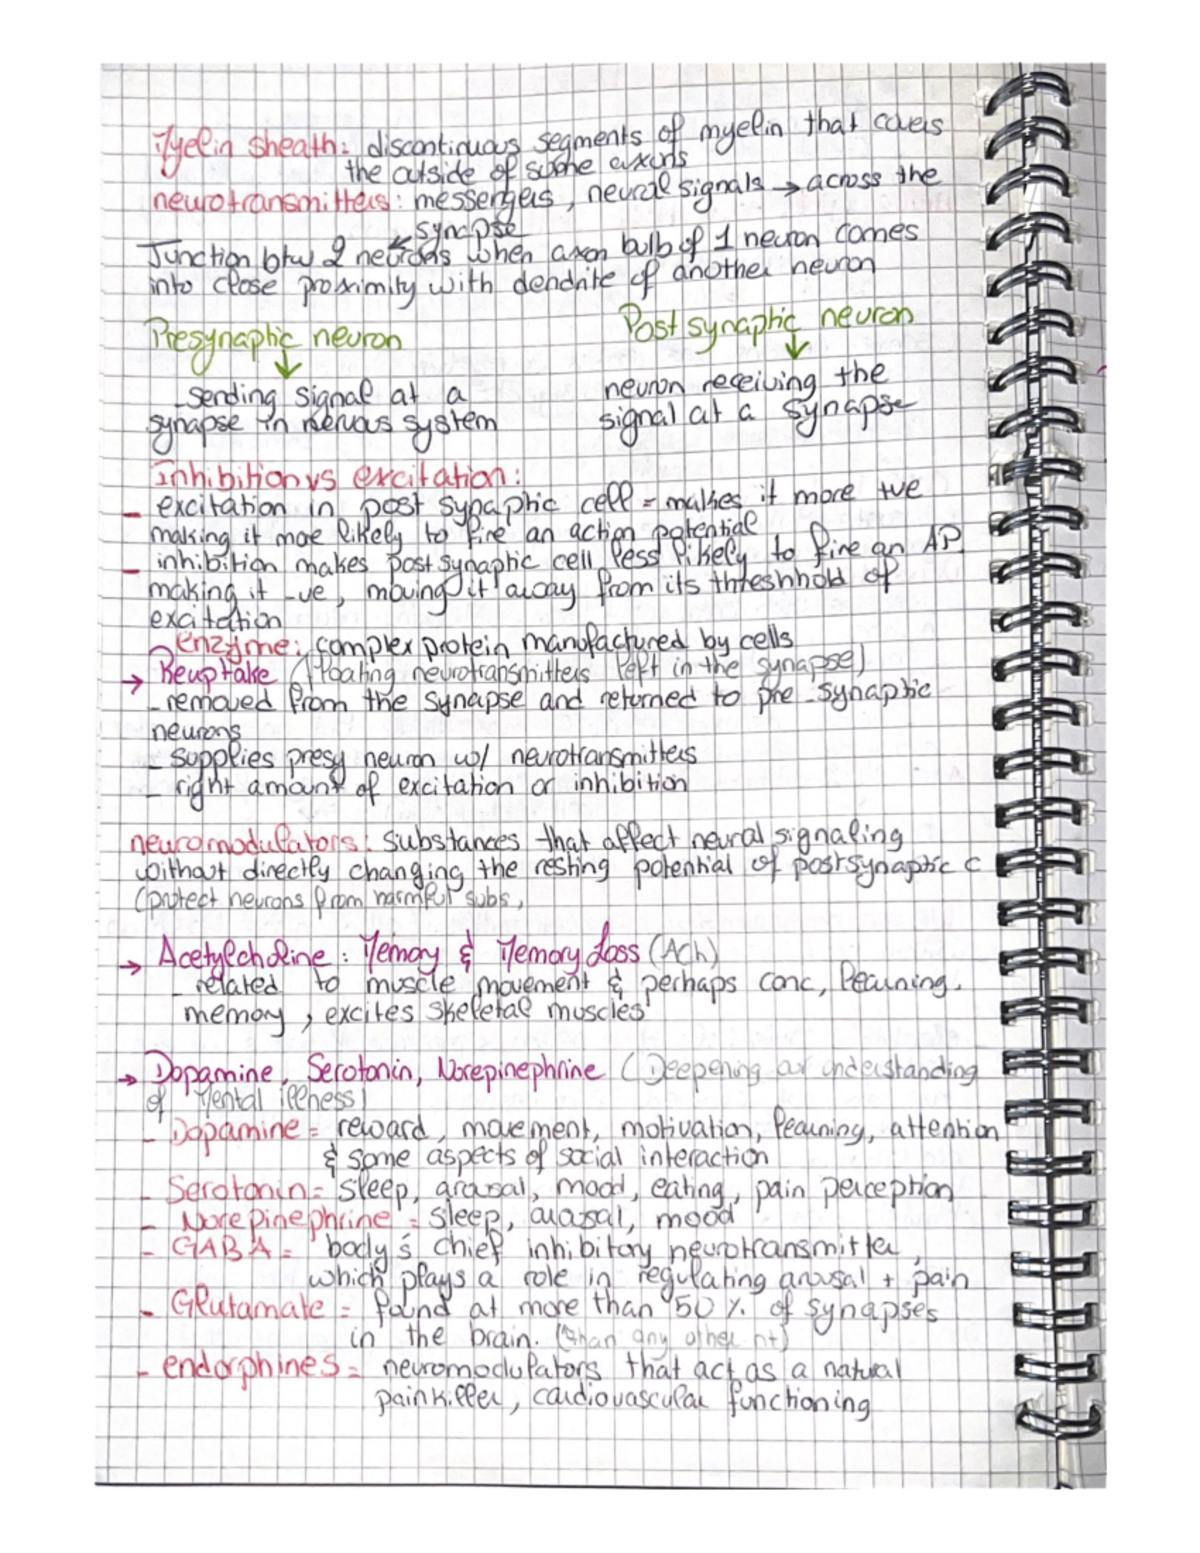 Myelin sheath: discontinuous segments of myelin that covers
the outside of some axons
neurotransmitters: messengers, neural signals → across the
synapse
Junction btw 2 neurons when axon bulb of 1 neuron comes
into close proximity with dendrite of another neuron
Presynaptic neuron
Post synaptic neuron
- sending signal at a
synapse in nervous system
neuron receiving the
signal at a synapse
Inhibition vs excitation:
- excitation in post synaptic cell = makes it more +ve
making it more likely to fire an action potential
- inhibition makes post synaptic cell less likely to fire an AP
making it -ve, moving it away from its threshhold of
excitation
enzyme: complex protein manufactured by cells
→ Reuptake (floating neurotransmitters left in the synapse)
- removed from the synapse and returned to pre-synaptic
neurons
- supplies presy neuron w/ neurotransmitters
- right amount of excitation or inhibition
neuromodulators: substances that affect neural signaling
without directly changing the resting potential of postsynaptic c
(protect neurons from harmful subs,
→ Acetylcholine: Memory & Memory Loss (ACh)
- related to muscle movement & perhaps conc, learning,
memory, excites skeletal muscles
→ Dopamine, Serotonin, Norepinephrine (Deepening our understanding
of Mental illness)
- Dopamine = reward, movement, motivation, learning, attention
& some aspects of social interaction
- Serotonin = sleep, arousal, mood, eating, pain perception
- Norepinephrine = sleep, arousal, mood
- GABA = body's chief inhibitory neurotransmitter,
which plays a role in regulating arousal + pain
- Glutamate = found at more than 50% of synapses
in the brain. (than any other nt)
- endorphines = neuromodulators that act as a natural
painkiller, cardiovascular functioning